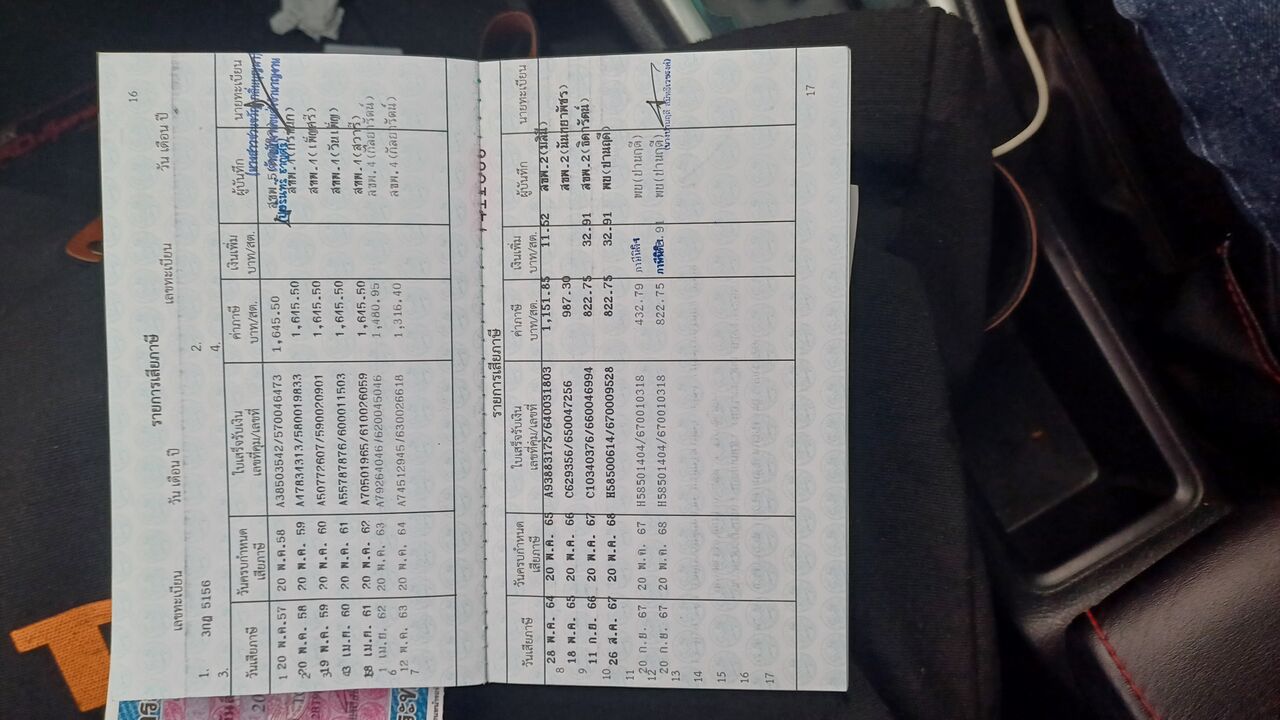 16
รายการเสียภาษี
เลขทะเบียน วัน เดือน ปี เลขทะเบียน วัน เดือน ปี
1. 3กฎ 5156 2.
3. 4.
วันเสียภาษี วันครบกำหนดเสียภาษี ใบเสร็จรับเงิน เลขที่คุม/เลขที่ ค่าภาษี บาท/สต. เงินเพิ่ม บาท/สต. ผู้บันทึก นายทะเบียน
1 20 พ.ค.57 20 พ.ค.58 A38503542/570046473 1,645.50
2 20 พ.ค. 58 20 พ.ค. 59 A47834313/580019833 1,645.50
3 19 พ.ค. 59 20 พ.ค. 60 A50772607/590020901 1,645.50 สขพ.4(เพ็ญศรี)
4 3 เม.ย. 60 20 พ.ค. 61 A55787876/600011503 1,645.50 สขพ.4(วันเพ็ญ)
18 เม.ย. 61 20 พ.ค. 62 A70501965/610026059 1,645.50 สขพ.4(สุวารี)
6 1 เม.ย. 62 20 พ.ค. 63 A79264046/620045046 1,480.95 สขพ.4(กัลยารัตน์)
7 12 พ.ค. 63 20 พ.ค. 64 A74512945/630026618 1,316.40 สขพ.4(กัลยารัตน์)
รายการเสียภาษี
วันเสียภาษี วันครบกำหนดเสียภาษี ใบเสร็จรับเงิน เลขที่คุม/เลขที่ ค่าภาษี บาท/สต. เงินเพิ่ม บาท/สต. ผู้บันทึก นายทะเบียน
8 28 พ.ค. 64 20 พ.ค. 65 A93883175/640031803 1,151.85 11.52
9 18 พ.ค. 65 20 พ.ค. 66 C629356/650047256 987.30 สขพ.2(นันทยาพัชร)
10 11 ก.ย. 66 20 พ.ค. 67 C10340376/660046994 822.75 32.91 สขพ.2(ธิดารัตน์)
11 26 ส.ค. 67 20 พ.ค. 68 H58500614/670009528 822.75 32.91 พย(ปานฤดี)
12 20 ก.ย. 67 20 พ.ค. 67 H58501404/670010318 432.79 พย(ปานฤดี)
13 20 ก.ย. 67 20 พ.ค. 68 H58501404/670010318 822.75 พย(ปานฤดี)
14
15
16
17
17